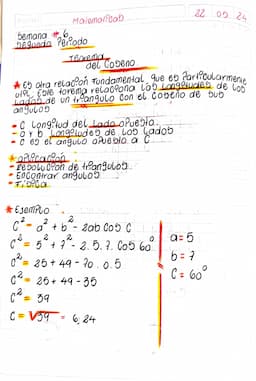 Matematicas
22 05 24
Semana # 6
Segundo Periodo
Teorema
del Coseno
* Es otra relación fundamental que es Particularmente
util, Este torema relaciona las longitudes de los
Lados de un triangulo con el coseno de sus
angulos
- C Longitud del Lado opuesto
- a y b Longitudes de los lados
- C es el angulo opuesto a C
* aplicación
- Resolución de triangulos
- Encontrar angulos
- Fisica
* Ejemplo
C² = a² + b² - 2ab Cos C
C² = 5² + 7² - 2.5.7. Cos 60°
C² = 25 + 49 - 70 . 0.5
C² = 25 + 49 - 35
C² = 39
C = √39 = 6,24
a = 5
b = 7
C = 60°